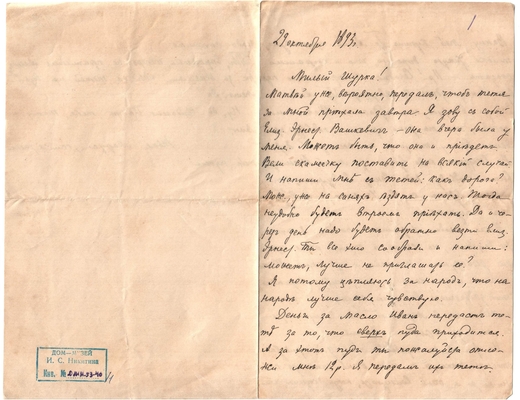 1
29 октября 1893.
Милый Шурка!
Матвей уже, вероятно, передалъ, чтобъ тетя
за мной прiѣхала завтра. Я зову съ собой
Елиз. Эрнест. Вашкевичъ – она вчера была у
меня. Можетъ быть, что она и прiѣдетъ.
Вели скамеечку поставить на всякiй случай
И напиши мнѣ съ тетей: какъ дорога?
Мож., уже на саняхъ ѣздятъ у насъ? Тогда
неудобно будетъ втроемъ прiѣхать. Да и че-
резъ день надо будетъ обратно везти Елиз.
Эрнест. Ты все это сообрази и напиши:
можетъ, лучше не приглашать ее?
Я потому цѣпляюсь за народъ, что на
народѣ лучше себя чувствую.
Деньги за масло Иванъ передастъ те-
тѣ за то, что сверхъ пуда приходится.
А за этотъ пудъ ты пожалуйста
мнѣ 12р. Я передамъ ихъ тетѣ
ДОМ-МУЗЕЙ
И. С. Никитина
Инв. №